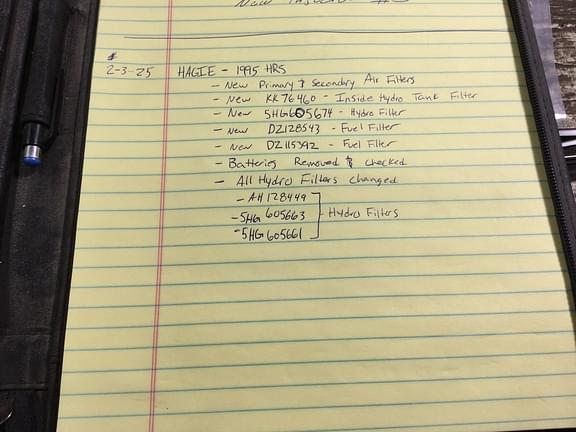 New
2-3-25 HAGIE - 1995 HRS
- New Primary & Secondary Air Filters
- New KK76460 - Inside Hydro Tank Filter
- New 5HG605674 - Hydro Filter
- New DZ128543 - Fuel Filter
- New DZ115392 - Fuel Filter
- Batteries Removed & checked
- All Hydro Filters Changed
- AH128449
- 5HG605663 Hydro Filters
- 5HG605661